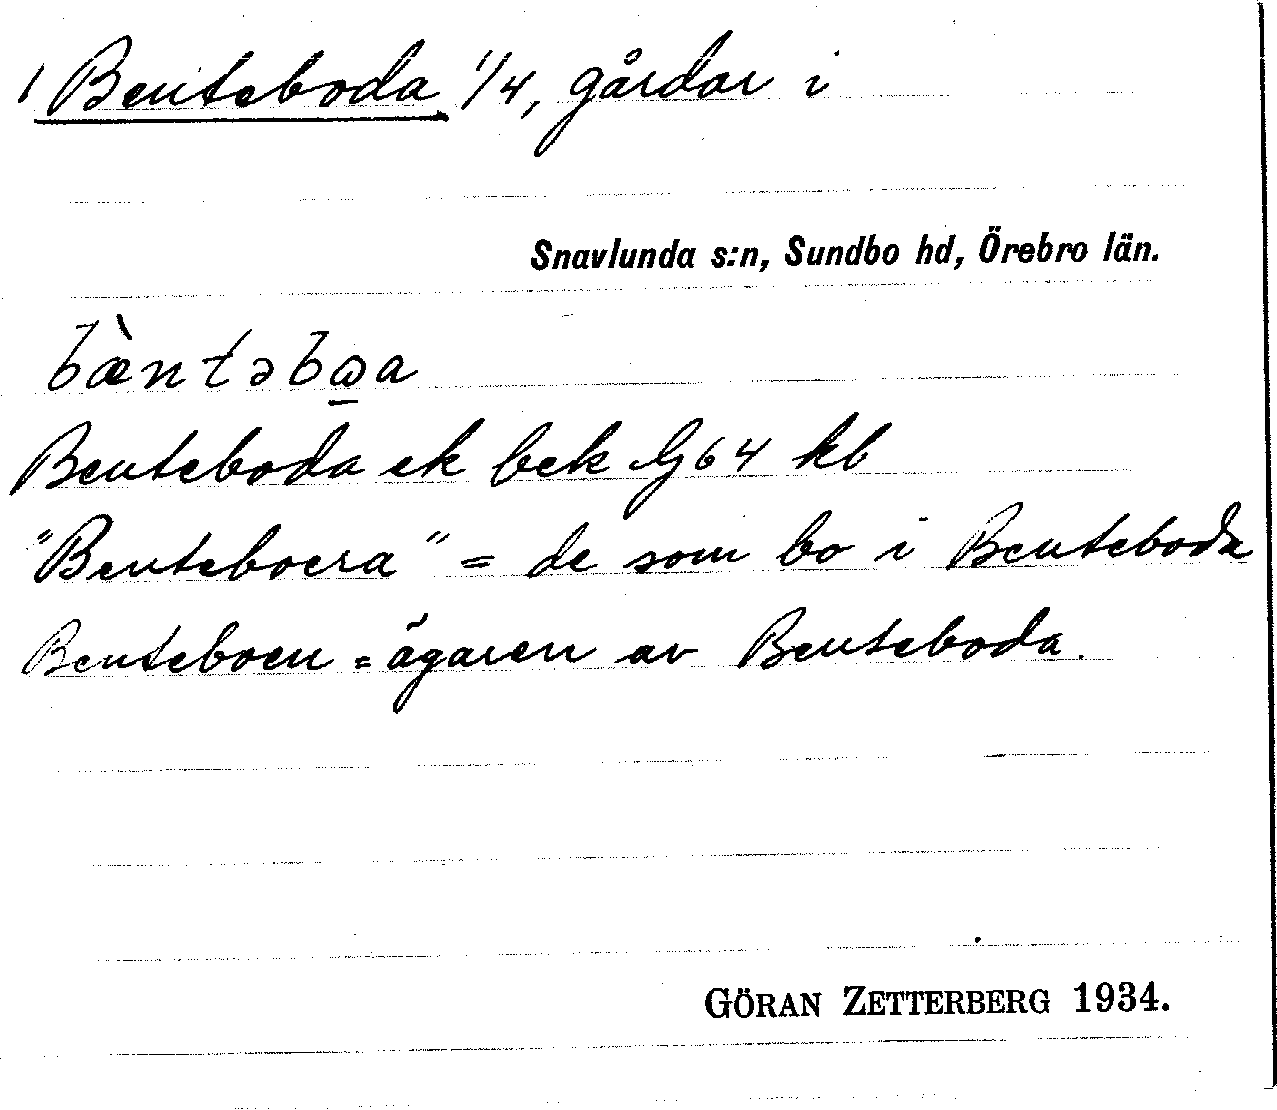 1 Benteboda 1/4, gårdar i
Snavlunda s:n, Sundbo hd, Örebro län.
bæ̀ntəbωa
Benteboda ek bek G64 kb
"Benteboera" = de som bo i Benteboda
Benteboen = ägaren av Benteboda.
GÖRAN ZETTERBERG 1934.